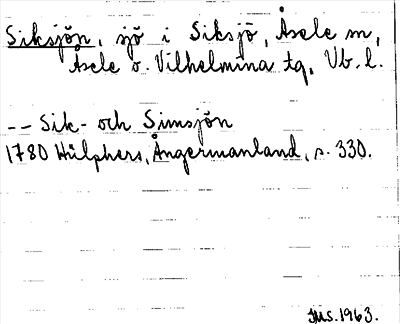 Siksjön, sjö i Siksjö, Åsele sn,
Åsele o. Vilhelmina tg, Vb. l.
-- Sik- och Simsjön
1780 Hülphers, Ångermanland, s. 330.
JMS. 1963.